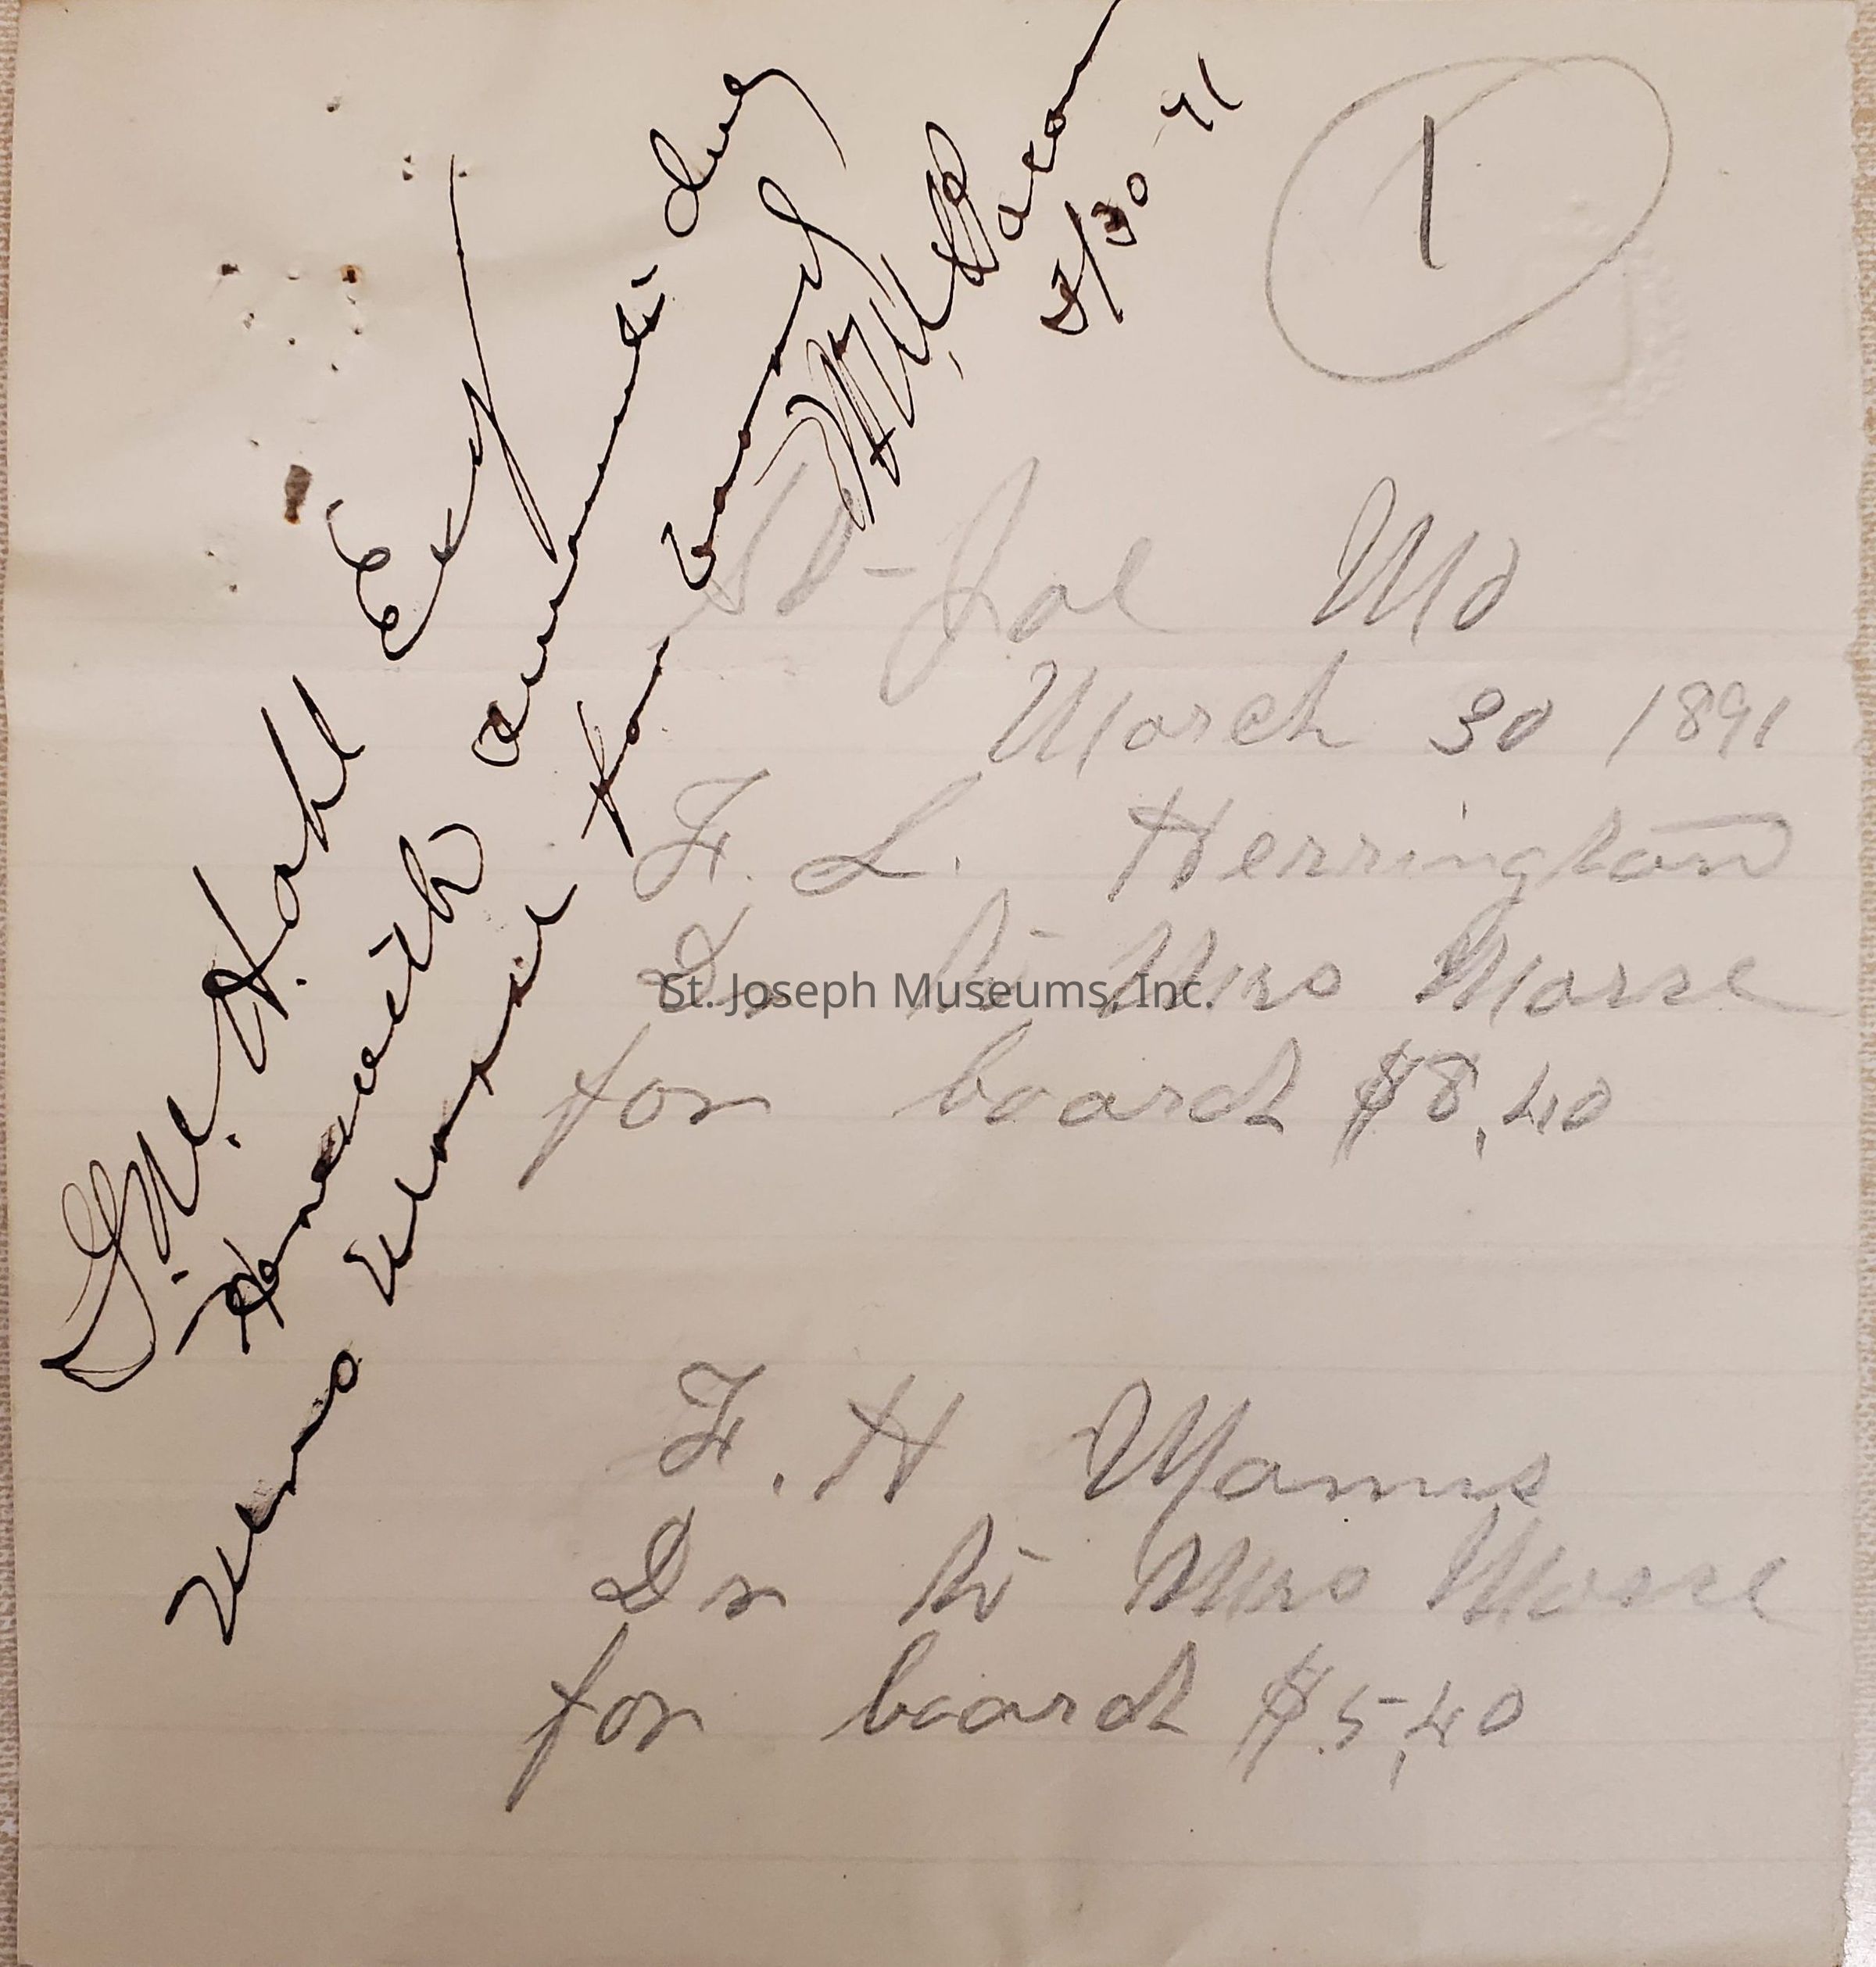 1
G.W. Hohl Esq
Herewith amounts due
Mrs Morse for board
3/30-91
St-Joe Mo
March 30 1891
F. L. Herrington
Dr to Mrs Morse
for board $8,40
F. H Manns
Dr to Mrs Morse
for board $5,40
St. Joseph Museums, Inc.